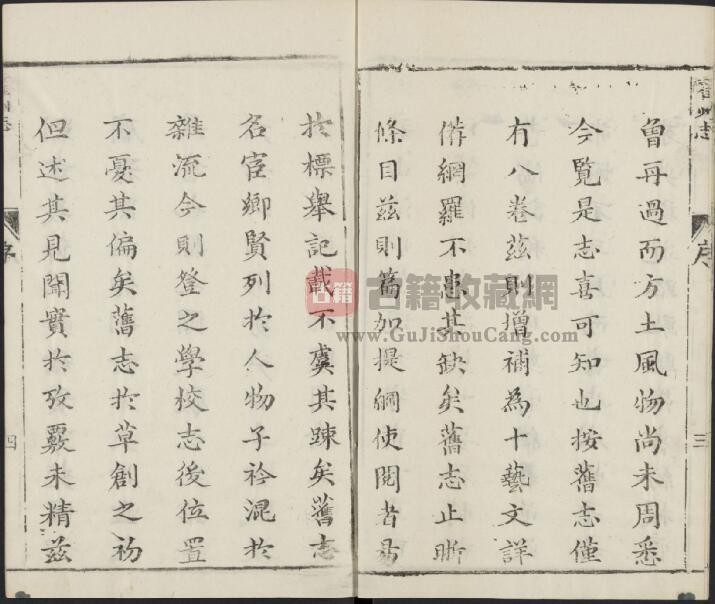 曾再過而方土風物尚未周悉
今覽是志喜可知也按舊志僅
有八卷茲則增補為十藝文詳
備網羅不患其缺矣舊志止晰
條目茲則篇加提綱使閱者易
於標舉記載不虞其踈矣舊志
名宦鄉賢列於人物子衿混於
雜流今則登之學校志後位置
不憂其偏矣舊志於草創之初
但述其見聞實於攷覈未精茲
州志
序
三
序
四
古籍
古籍收藏網
www.GuJiShouCang.com